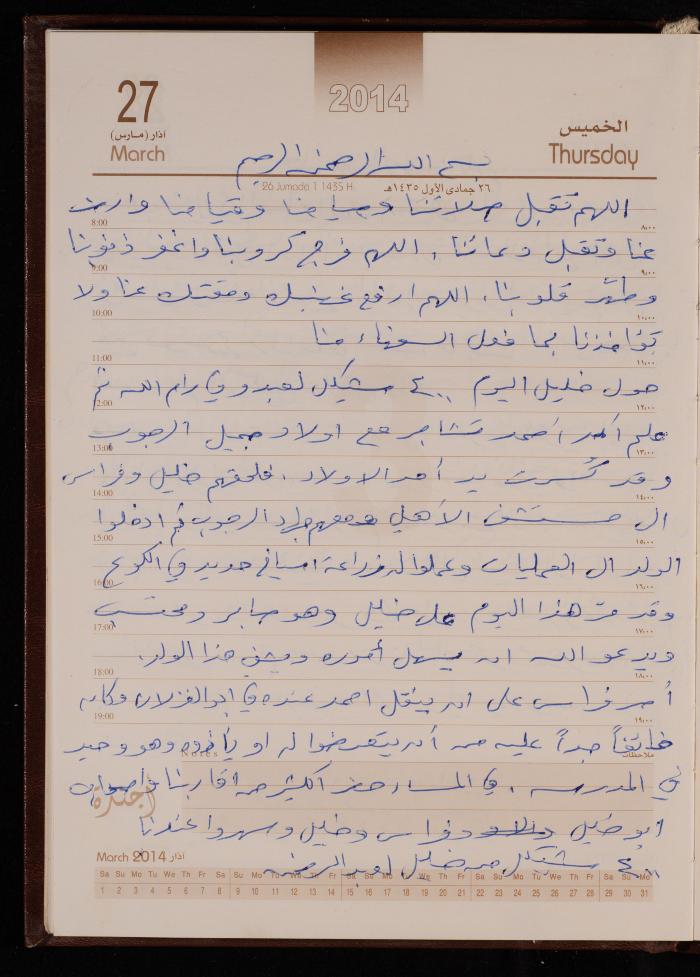 2014
27
آذار (مارس)
March
الخميس
Thursday
بسم الله الرحمن الرحيم
26 Jumada 1 1435 H
٢٦ جمادى الأول ١٤٣٥هـ
اللهم تقبل صلاتنا وصيامنا وقيامنا وارض
8:00 ٨:٠٠
عنا وتقبل دعائنا، اللهم فرج كروبنا واغفر ذنوبنا
9:00 ٩:٠٠
وطهر قلوبنا، اللهم ارفع غضبك ومقتك عنا ولا
10:00 ١٠:٠٠
تؤاخذنا بما فعل السفهاء منا
11:00 ١١:٠٠
حول خليل اليوم ٤٠٠ شيكل لعبدو في رام الله ثم
12:00 ١٢:٠٠
علم أن أحمد تشاجر مع اولاد جميل الرجوب
13:00 ١٣:٠٠
وقد كُسرت يد أحد الاولاد، فلحقهم خليل وفراس
14:00 ١٤:٠٠
الى مستشفى الأهلي ومعهم الرجوب ثم ادخلوا
15:00 ١٥:٠٠
الولد الى العمليات وعملوا له زراعة اسياخ حديد في الكوع
16:00 ١٦:٠٠
وقد مرّ هذا اليوم على خليل وهو صابر ومحتسب
17:00 ١٧:٠٠
ويدعو الله ان يسهل أموره ويشفي هذا الولد.
18:00 ١٨:٠٠
أصر فراس على ان ينقل احمد عنده في ابو الغزلان وكان
19:00 ١٩:٠٠
خائفاً جداً عليه من أن يتعرضوا له او يأخذوه وهو وحيد
Notes ملاحظات
في المدرسة، في المساء حضر اكثر من اقاربنا
أجندة
ابو خليل وفراس وخليل وسهروا عندنا
March 2014 آذار
٤٠٠ شيكل من خليل لعبد الرحمن
Sa Su Mo Tu We Th Fr Sa Su Mo Tu We Th Fr Sa Su Mo Tu We Th Fr Sa Su Mo Tu We Th Fr Sa Su Mo
1 2 3 4 5 6 7 8 9 10 11 12 13 14 15 16 17 18 19 20 21 22 23 24 25 26 27 28 29 30 31